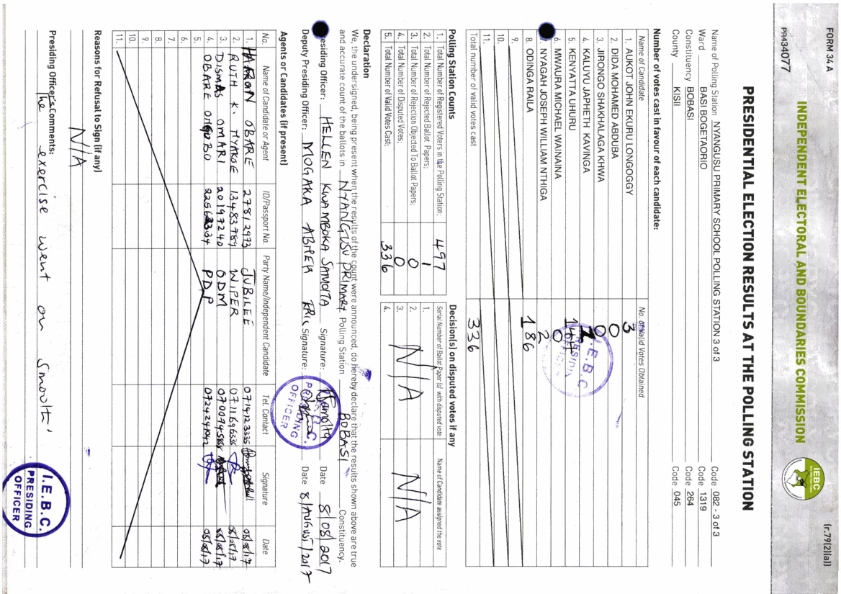 FORM 34 A
(r.79(2)(a))
PS434077
INDEPENDENT ELECTORAL AND BOUNDARIES COMMISSION
IEBC
PRESIDENTIAL ELECTION RESULTS AT THE POLLING STATION
Name of Polling Station NYANGUSU PRIMARY SCHOOL POLLING STATION 3 of 3 Code 082 - 3 of 3
Ward BASI BOGETAORIO Code 1319
Constituency BOBASI Code 264
County KISII Code 045
Number of votes cast in favour of each candidate:
Name of Candidate No. of Valid Votes Obtained
1. AUKOT JOHN EKURU LONGOGGY 3
2. DIDA MOHAMED ABDUBA 0
3. JIRONGO SHAKHALAGA KHWA 0
4. KALUYU JAPHETH KAVINGA
5. KENYATTA UHURU
6. MWAURA MICHAEL WAINAINA 0
NYAGAH JOSEPH WILLIAM NTHIGA 2
8. ODINGA RAILA 186
9.
10.
11.
Total number of valid votes cast 336
I.E.B.C. PRESIDING OFFICER
Polling Station Counts
1. Total Number of Registered Voters in the Polling Station: 497
2. Total Number of Rejected Ballot Papers: 1
3. Total Number of Rejection Objected To Ballot Papers: 0
4. Total Number of Disputed Votes: 0
5. Total Number of Valid Votes Cast: 336
Decision(s) on disputed votes if any
Serial Number of Ballot Paper(s) with disputed vote Name of Candidate assigned the vote
1.
2. N/A N/A
3.
4.
Declaration
We, the undersigned, being present when the results of the count were announced, do hereby declare that the results shown above are true
and accurate count of the ballots in NYANGUSU PRIMARY Polling Station BOBASI Constituency.
Presiding Officer: HELLEN KWAMBOKA Signature: Date 8/08/2017
Deputy Presiding Officer: MOGAKA ABNER ERIC Signature: Date 8/AUGUST/2017
I.E.B.C. PRESIDING OFFICER
Agents or Candidates (if present)
No. Name of Candidate or Agent ID/Passport No. Party Name/Independent Candidate Tel. Contact Signature Date
1. OBARE 27812973 JUBILEE 08/8/17
2. RUTH K. WIPER
3. DISMAS OMARI 20197240 ODM 08/8/17
4. OBARE PDP 08/8/17
5.
6.
7.
8.
9.
10.
11.
Reasons for Refusal to Sign (if any)
N/A
Presiding Officer's Comments:
The exercise went on smooth
I.E.B.C. PRESIDING OFFICER